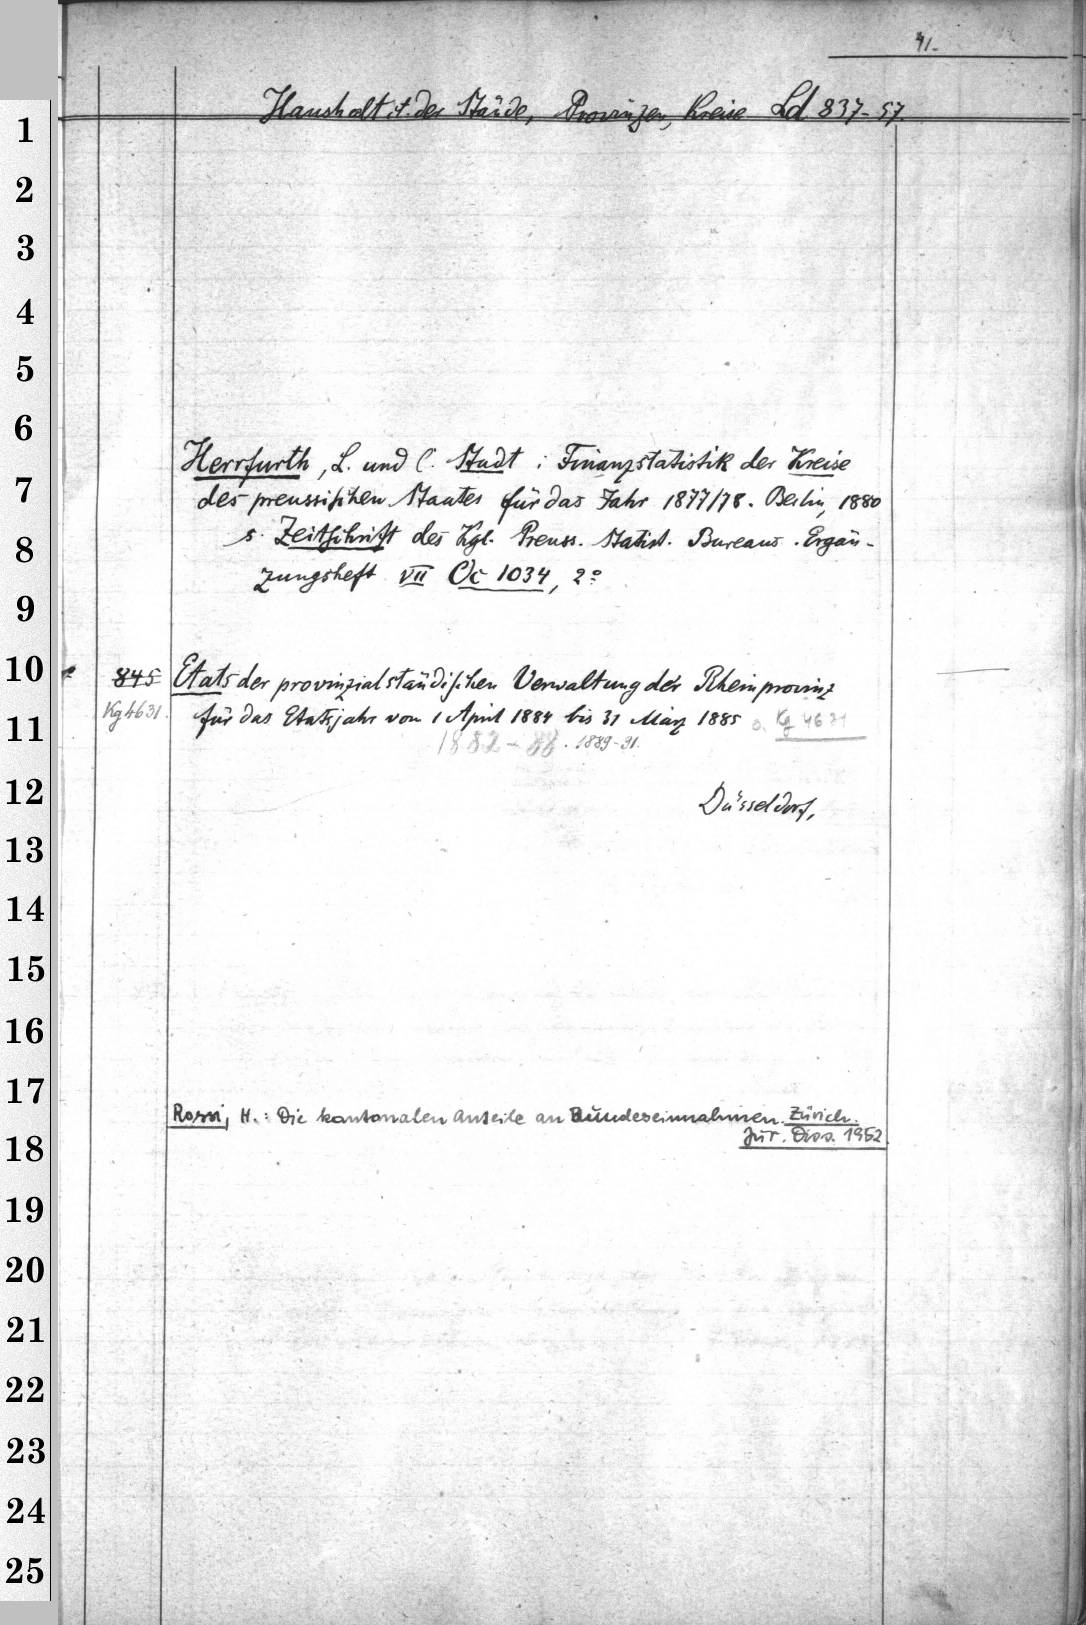 41.
Haushalt it. der Stände, Provinzen, Kreise Ld 837-57
1
2
3
4
5
6
Herrfurth, L. und C. Studt : Finanzstatistik der Kreise
7
des preussischen Staates für das Jahr 1877/78. Berlin, 1880
8
s. Zeitschrift des Kgl. Preuss. Statist. Bureaus. Ergän-
zungsheft VII Oc 1034, 2°
9
10
845 Etats der provinzialständischen Verwaltung der Rheinprovinz
Kg 4631. für das Etatsjahr vom 1 April 1884 bis 31 März 1885 Kg 4631
11
1882-88. 1889-91.
12
Düsseldorf,
13
14
15
16
17
Rossi, H.: Die kantonalen Anteile an Bundeseinnahmen. Zürich.
Jur. Diss. 1952
18
19
20
21
22
23
24
25